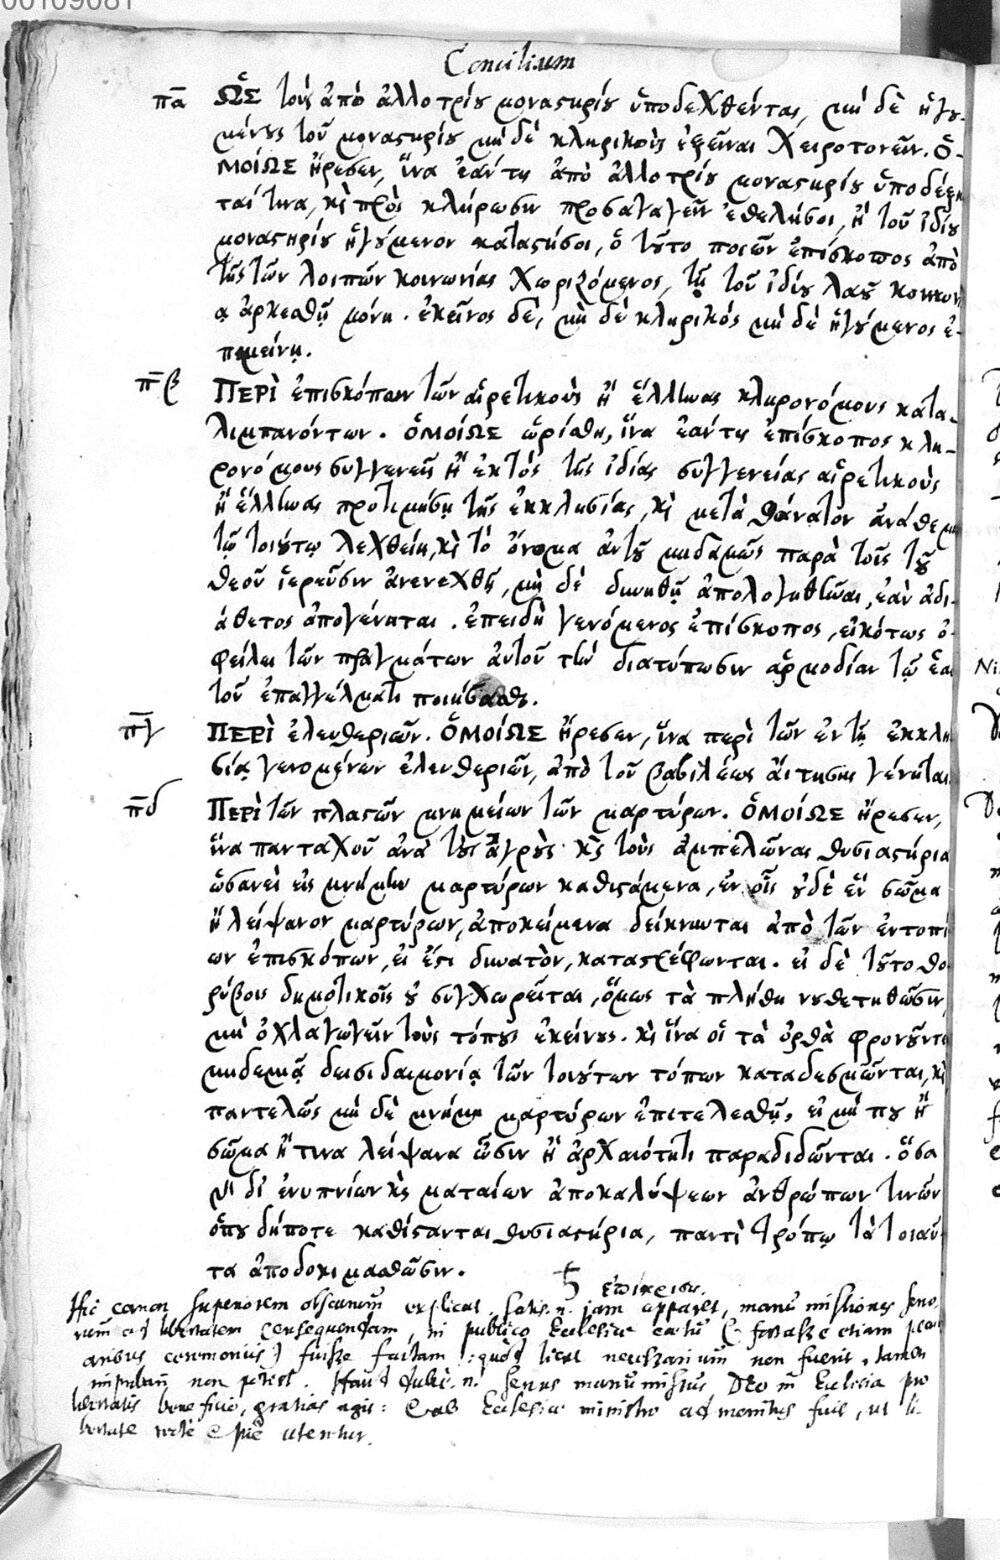 00109081
Concilium
πα ΩΣ τοὺς ἀπὸ ἀλλοτρίου μοναστηρίου ὑποδεχθέντας, μὴ δὲ ἡγου-
μένους τοῦ μοναστηρίου μὴ δὲ κληρικοὺς ἐξεῖναι χειροτονεῖν. Ὁ-
ΜΟΙΩΣ ἤρεσεν, ἵνα ἐάν τις ἀπὸ ἀλλοτρίου μοναστηρίου ὑποδέξη
ταί τινα, κὶ πρὸς κλήρωσιν προσαγαγεῖν ἐθελήσοι, ἢ τοῦ ἰδίου
μοναστηρίου ἡγούμενον καταστήσοι, ὁ τοῦτο ποιῶν ἐπίσκοπος ἀπὸ
τῆς τῶν λοιπῶν κοινωνίας χωριζόμενος, τῇ τοῦ ἰδίου λαοῦ κοινων
ᾳ ἀρκεσθῇ μόνῃ. ἐκεῖνος δὲ, μὴ δὲ κληρικός μὴ δὲ ἡγούμενος ἐ-
πιμείνῃ.
πβ ΠΕΡῚ ἐπισκόπων τῶν αἱρετικοὺς ἢ ἕλληνας κληρονόμους κατα-
λιμπανόντων. ὉΜΟΙΩΣ ὡρίσθη, ἵνα ἐάν τις ἐπίσκοπος κλη-
ρονόμους συγγενεῖς ἢ ἐκτὸς τῆς ἰδίας συγγενείας αἱρετικοὺς
ἢ ἕλληνας προτιμήσῃ τῆς ἐκκλησίας, κὶ μετὰ θάνατον ἀνάθεμα
τῷ τοιούτῳ λεχθείη, κὶ τὸ ὄνομα αὐτοῦ μηδαμῶς παρὰ τοῖς τοῦ
θεοῦ ἱερεῦσιν ἀνενεχθῇ, μὴ δὲ δυνηθῇ ἀπολογηθῆναι, ἐὰν ἀδι-
άθετος ἀπογένηται. ἐπειδὴ γενόμενος ἐπίσκοπος, εἰκότως ὀ-
φείλει τῶν πραγμάτων αὐτοῦ τὴν διατύπωσιν ἁρμοδίαν τῷ ἑαυ
τοῦ ἐπαγγέλματι ποιήσασθαι.
πγ ΠΕΡῚ ἐλευθεριῶν. ὉΜΟΙΩΣ ἤρεσεν, ἵνα περὶ τῶν ἐν τῇ ἐκκλη
σίᾳ γενομένων ἐλευθεριῶν, ἀπὸ τοῦ βασιλέως αἴτησις γένηται
πδ ΠΕΡῚ τῶν πλαστῶν μνημείων τῶν μαρτύρων. ὉΜΟΙΩΣ ἤρεσεν,
ἵνα πανταχοῦ ἀνὰ τοὺς ἀγροὺς κὶ τοὺς ἀμπελῶνας θυσιαστήρια
ὡσανεὶ εἰς μνήμην μαρτύρων καθιστάμενα, ἐν οἷς οὐδὲ ἓν σῶμα
ἢ λείψανον μαρτύρων, ἀποκείμενα δείκνυται ἀπὸ τῶν ἐντοπί
ων ἐπισκόπων, εἰ ἔστι δυνατὸν, καταστρέφωνται. εἰ δὲ τοῦτο θο
ρύβοις δημοτικοῖς οὐ συγχωρεῖται, ὅμως τὰ πλήθη νουθετηθῶσιν
μὴ ὀχλαγωγεῖν τοὺς τόπους ἐκείνους. κὶ ἵνα οἱ τὰ ὀρθὰ φρονοῦντε
μηδεμιᾷ δεισιδαιμονίᾳ τῶν τοιούτων τόπων καταδεσμῶνται, κὶ
παντελῶς μὴ δὲ μνήμη μαρτύρων ἐπιτελεσθῇ, εἰ μή που ἢ
σῶμα ἤ τινα λείψανα ὦσιν ἢ ἀρχαιότητι παραδιδῶνται. ὅσα
δι' ἐνυπνίων κὶ ματαίων ἀποκαλύψεων ἀνθρώπων τινῶν
ὅπου δήποτε καθίστανται θυσιαστήρια, παντὶ τρόπῳ τὰ τοιαῦ
τα ἀποδοκιμασθῶσιν.
Hic canon superiorem obscurum explicat. satis n. iam apparet, manu missiones servo
rum ad libertatem consequendam, in publico Ecclesiae
ceremoniis) fuisse factam: quod licet necessarium non fuerit, tamen
non potest. Haud dubie n. servus manumissus, Deo in Ecclesia pro
libertatis beneficio, gratias agit: & ab Ecclesiae ministro admonitus fuit, ut li
bertate recte & pie utentur.